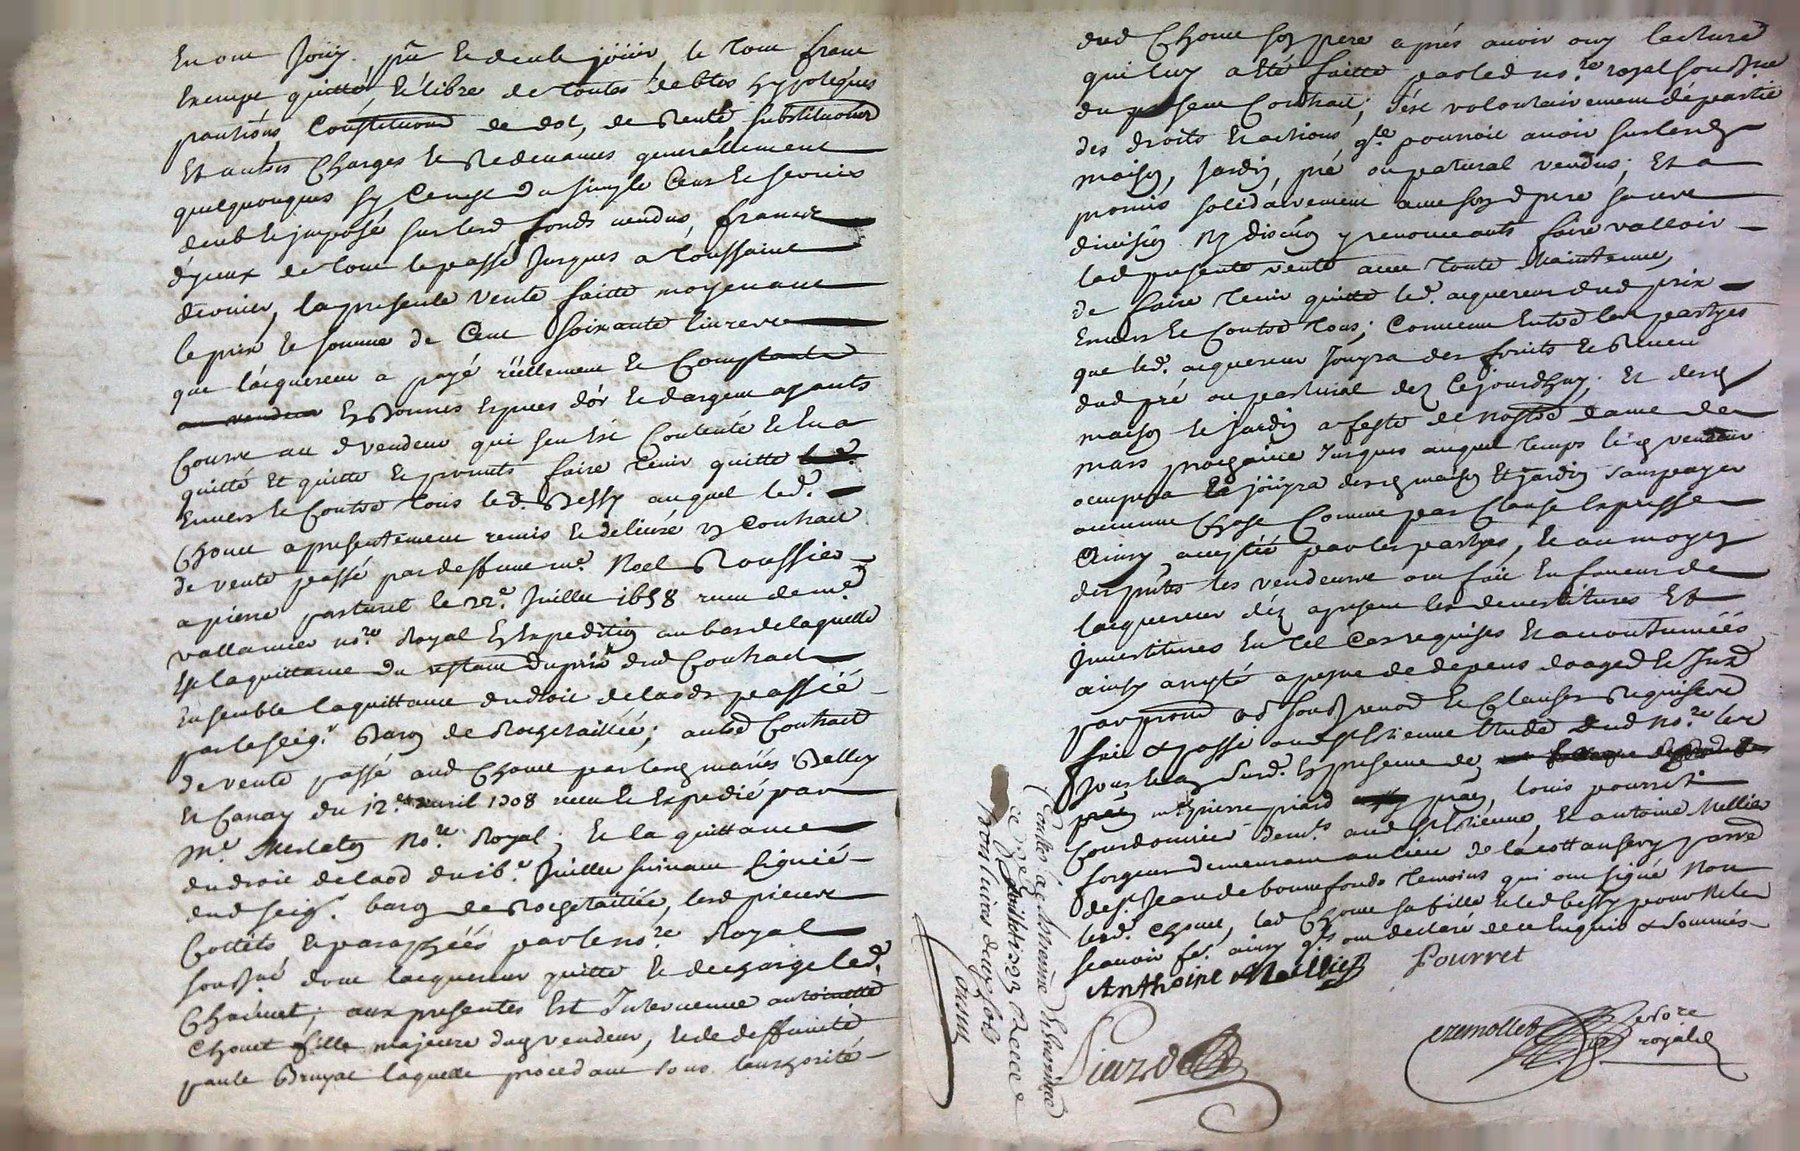 En ont Jouy, pu et deub jouir, le tout franc
exempt quitte et libre de toutes debtes hypoteques
pantions Constitutions de dot, de rente, substitutions
Et autres Charges et Redevances generallement
quelquonques sy Ce n'est du simple Cens et servis
deub et imposé sur lesd fonds vendus, francs
d'yceux de tout le passé Jusques a toussaint
dernier, la presente vente faitte moyenant
le prix et somme de Cent soixante livres
que lacquereur a payé réellement et Comptant
en bonnes espèces d'or et dargent ayants
Cours au d vendeur qui sen est Contenté et l'en a
quitté et quitte et promets faire tenir quitte
Envers et Contre tous led. Bessy auquel led.
Chouet a presentement remis et delivré un Contract
de vente passé par deffunt me. Noel Roussier
a pierre pasturel le 22e. Juillet 1658 receu de me.
vallancier nore. Royal En Expedition au bas de laquelle
Est la quittance du restant du prix dud Contract
Ensemble la quittance du droit de laods passée
par le seigr. Baron de Rochetaillée; autre Contract
de vente passé aud Chouet par les mariés Bessy
et Canay du 12e. avril 1708 receu et Expedié par
Me. Merlaton Nore. Royal; Et la quittance
du droit de laod du 16e. Juillet suivant signée
dud seigr. baron de Rochetaillée, lesd pieces
Cottées et paraphées par le nore. Royal
soussné dont lacquereur quitte et decharge led.
Chouet; aux presentes Est Intervenue antoinette
Chouet fille majeure dud vendeur, et de deffuncte
paule Bruyat laquelle procedant sous lauthorité
dud Chouet son pere apres avoir ouy lecture
qui luy a été faitte par led nore. royal soussné
du present Contract; s'est volontairement départie
des droits et actions qle pourroit avoir sur lesd
maison, Jardin, pré ou patural vendus; Et a
promis solidairement avec son d pere sans
division ny discution y renonceants faire valloir
lad presente vente avec toute Maintenue,
de faire tenir quitte led. acquereur dud prix
Envers et Contre tous; Convenu Entre les partyes
que led. acquereur Jouyra des fruits et Revenu
dud pré ou pastural dez Cejourdhuy; Et desd
maison et Jardin a feste de nostre dame de
mars prochaine Jusques auquel temps led vendeur
occupera Et jouyra desd maison et jardin sans payer
aucunne Chose Comme par Clause Expresse
Ainsy acceptée par les partyes, et au moyen
des pntes les vendeurs ont fait En faveur de
lacquereur dez a present les devestitures Et
Investitures En tel Cas requises et accoutumées
ainsy arresté a peyne de depens domages et Intts
par promt obd soubd renond et Clauses Requises
fait & passé aud St Estienne Etude dud nore. les
Jour et an susd. En presence de
me pierre piard pratn, louis pourret
Courdonnier demts aud St Estienne, Et antoine Mellier
forgeur demeurant au lieu de la cottansery parre
de St. Jean de bonnefonds temoins qui ont signé Non
led. Chouet, lad Chouet sa fille et led bessy pour ne le
scavoir fe. ainsy qls ont declaré de ce Enquis & sommés
Anthoine Mellier Pourret
Piard
Cremollet nore
royal
Controllé a St Etienne
ce Juillet 1722 Receu
trois livres deux sols